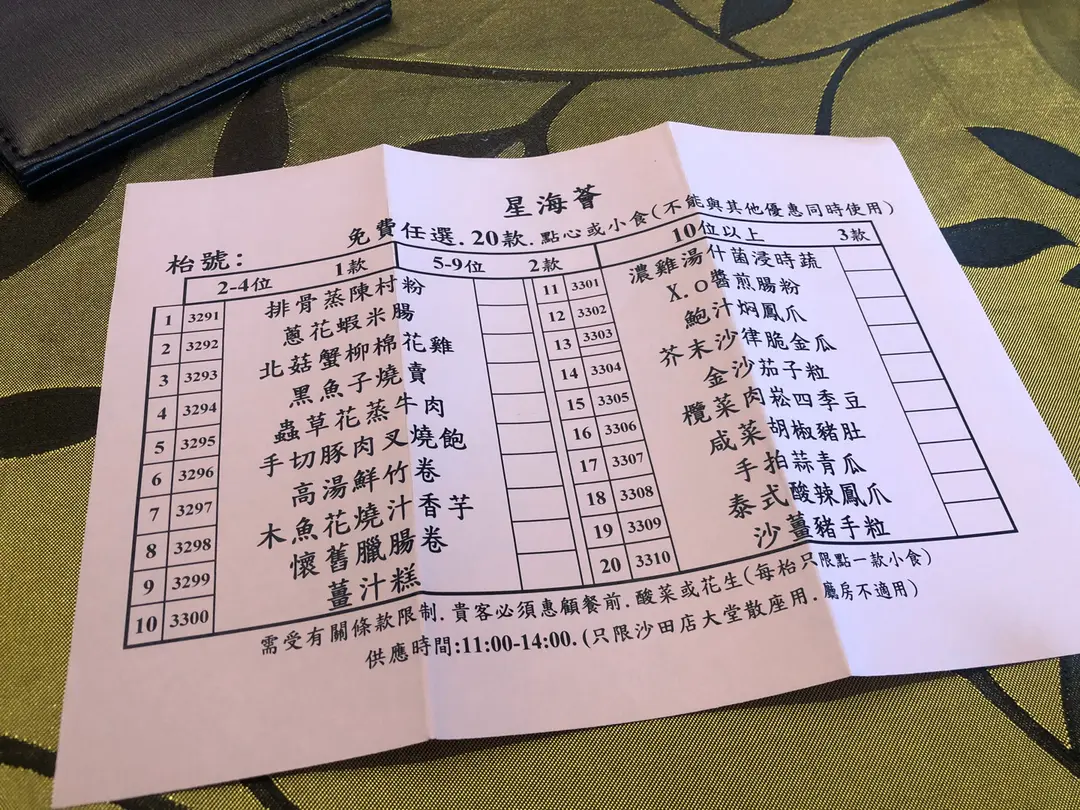 星海薈
免費任選.20款.點心或小食(不能與其他優惠同時使用)
枱號:
2-4位 1款 5-9位 2款 10位以上 3款
1 3291 排骨蒸陳村粉
2 3292 蔥花蝦米腸
3 3293 北菇蟹柳棉花雞
4 3294 黑魚子燒賣
5 3295 蟲草花蒸牛肉
6 3296 手切豚肉叉燒飽
7 3297 高湯鮮竹卷
8 3298 木魚花燒汁香芋
9 3299 懷舊臘腸卷
10 3300 薑汁糕
11 3301 濃雞湯什菌浸時蔬
12 3302 X.O醬煎腸粉
13 3303 鮑汁焖鳳爪
14 3304 芥末沙律脆金瓜
15 3305 金沙茄子粒
16 3306 欖菜肉崧四季豆
17 3307 咸菜胡椒豬肚
18 3308 手拍蒜青瓜
19 3309 泰式酸辣鳳爪
20 3310 沙薑豬手粒
需受有關條款限制.貴客必須惠顧餐前.酸菜或花生(每枱只限點一款小食)
供應時間:11:00-14:00.(只限沙田店大堂散座用.廳房不適用)